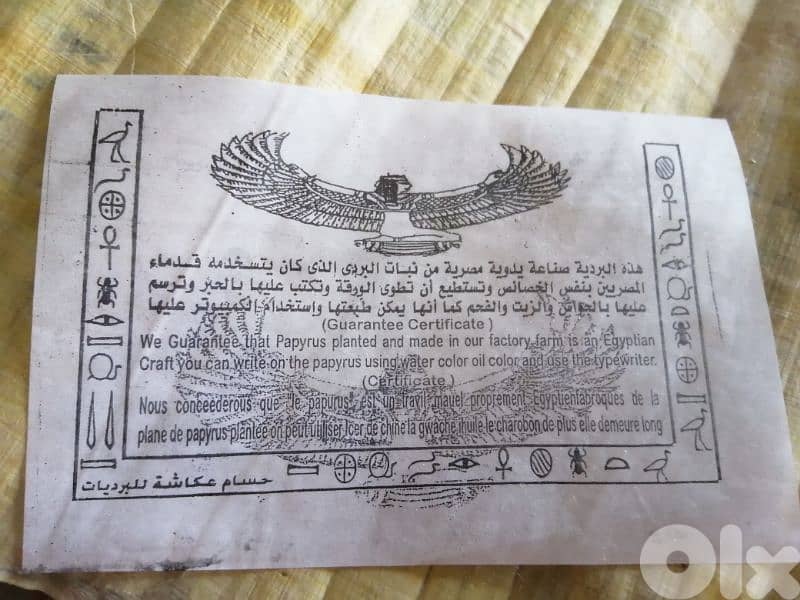 هذه البردية صناعة يدوية مصرية من نبات البردى الذى كان يتسخدمه قدماء
المصريين بنفس الخصائص وتستطيع أن تطوى الورقة وتكتب عليها بالحبر وترسم
عليها بالجواش والزيت والفحم كما أنها يمكن طبعتها وإستخدام الكمبيوتر عليها
(Guarantee Certificate)
We Guarantee that Papyrus planted and made in our factory farm is an Egyptian
Craft you can write on the papyrus using water color oil color and use the typewriter.
(Certificate)
Nous conceederous que "le papurus" est un travil mauel proprement Egyptienfabroques de la
plane de papyrus plantee on peut utiliser lcer de chine la gwache lhuile le charobon de plus elle demeure long
حسام عكاشة للبرديات
Olx